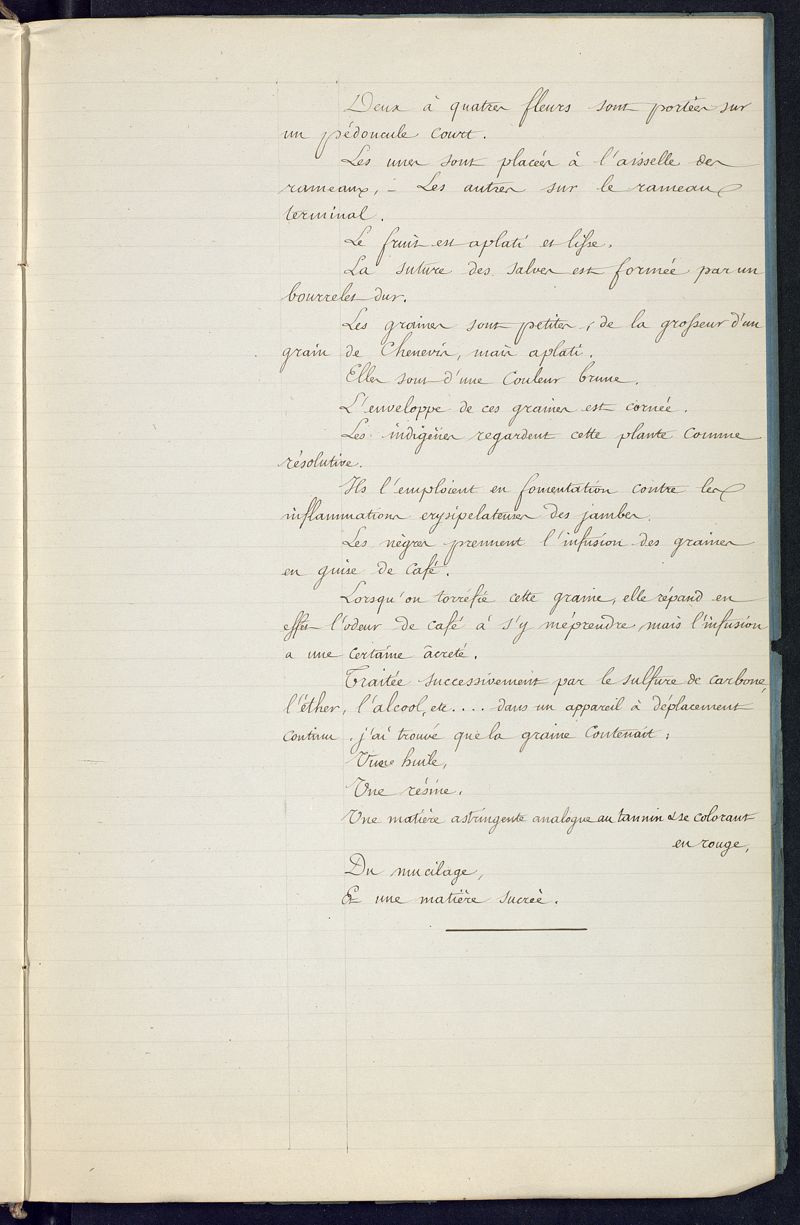 Deux à quatre fleurs sont portées sur
un pédoncule court.
Les unes sont placées à l'aisselle des
rameaux, - Les autres sur le rameau
terminal.
Le fruit est aplati et lisse.
La suture des valves est formée par un
bourrelet dur.
Les graines sont petites, de la grosseur d'un
grain de Chenevis, mais aplati.
Elles sont d'une couleur brune.
L'enveloppe de ces graines est cornée.
Les indigènes regardent cette plante comme
résolutive.
Ils l'emploient en fomentation contre les
inflammations erysipelateuses des jambes.
Les nègres prennent l'infusion des graines
en guise de café.
Lorsqu'on torréfie cette graine, elle répand en
effet l'odeur de café à s'y méprendre mais l'infusion
a une certaine âcreté.
Traitée successivement par le sulfure de carbone,
l'éther, l'alcool, etc.... dans un appareil à déplacement
continu, j'ai trouvé que la graine contenait:
Une huile,
Une résine,
Une matière astringente analogue au tannin & se colorant
en rouge,
Du mucilage,
Et une matière sucrée.